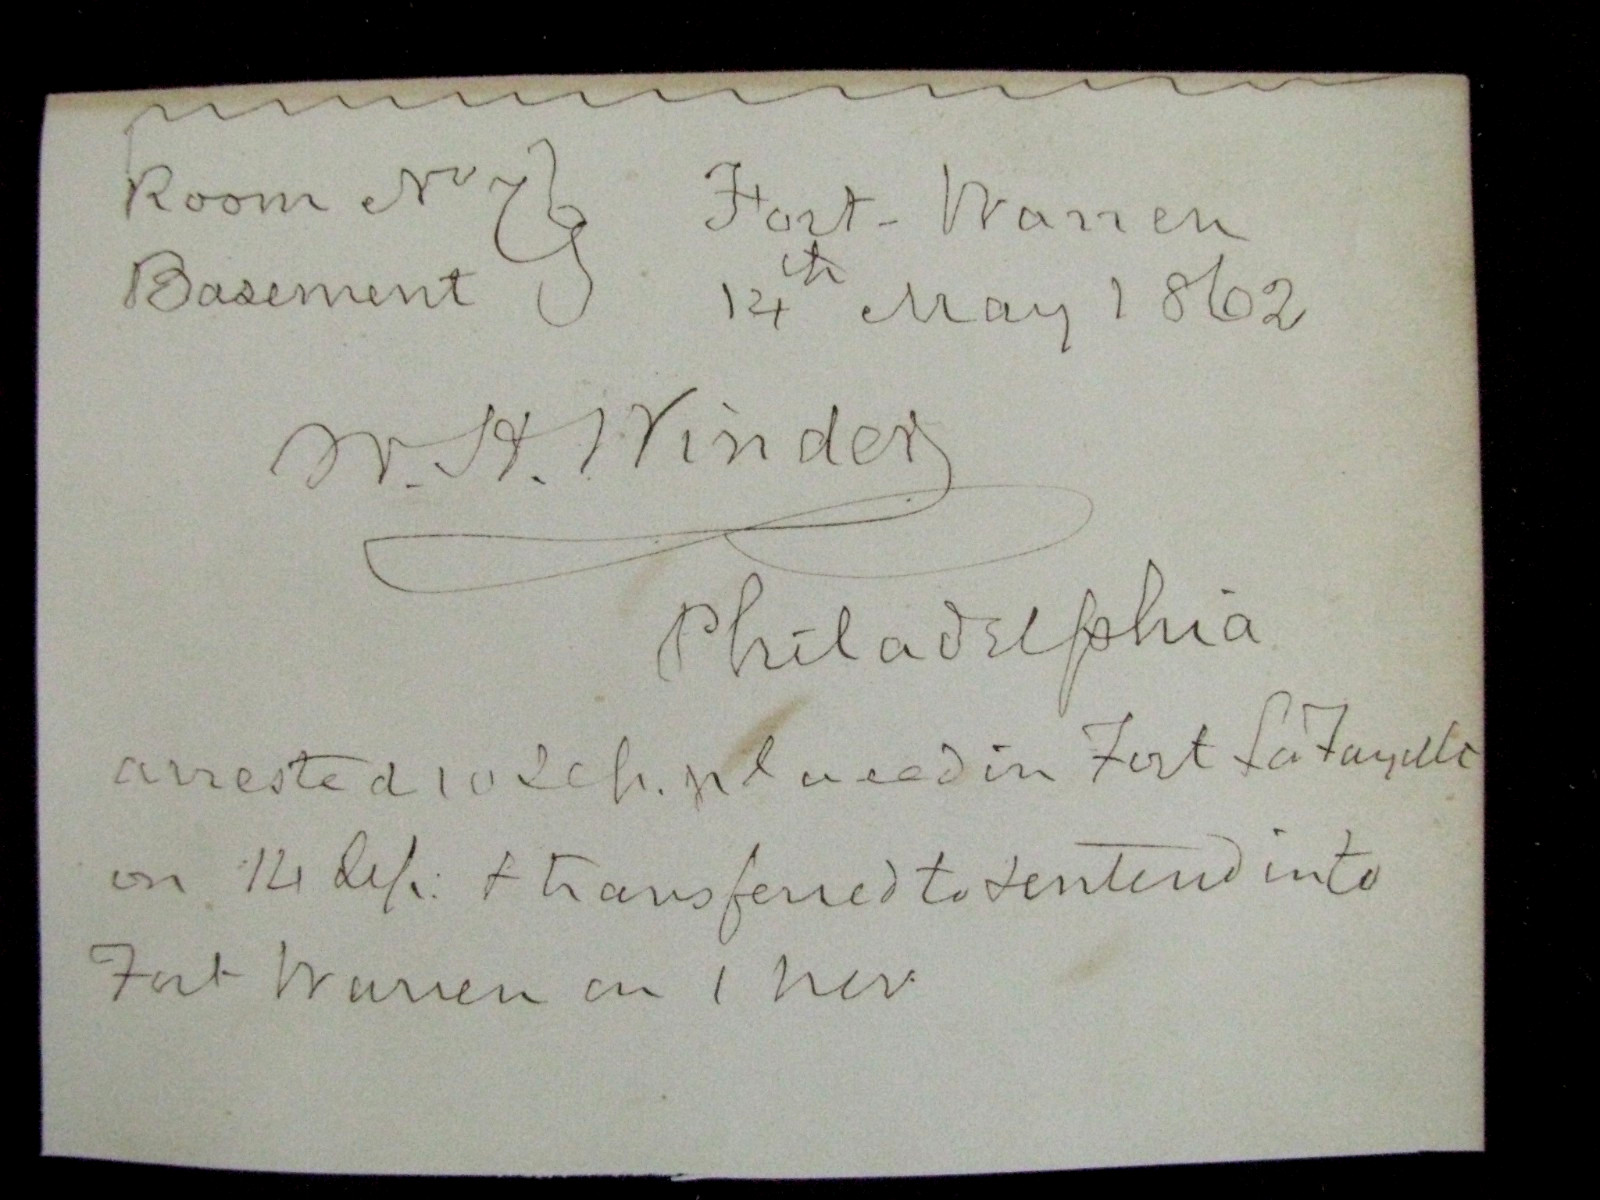 Room No 7 } Fort-Warren
Basement 14th May 1862
W. H. Winder
Philadelphia
arrested 10 Sep. placed in Fort LaFayette
on 12 Sep: & transferred to & entered into
Fort Warren on 1 Nov